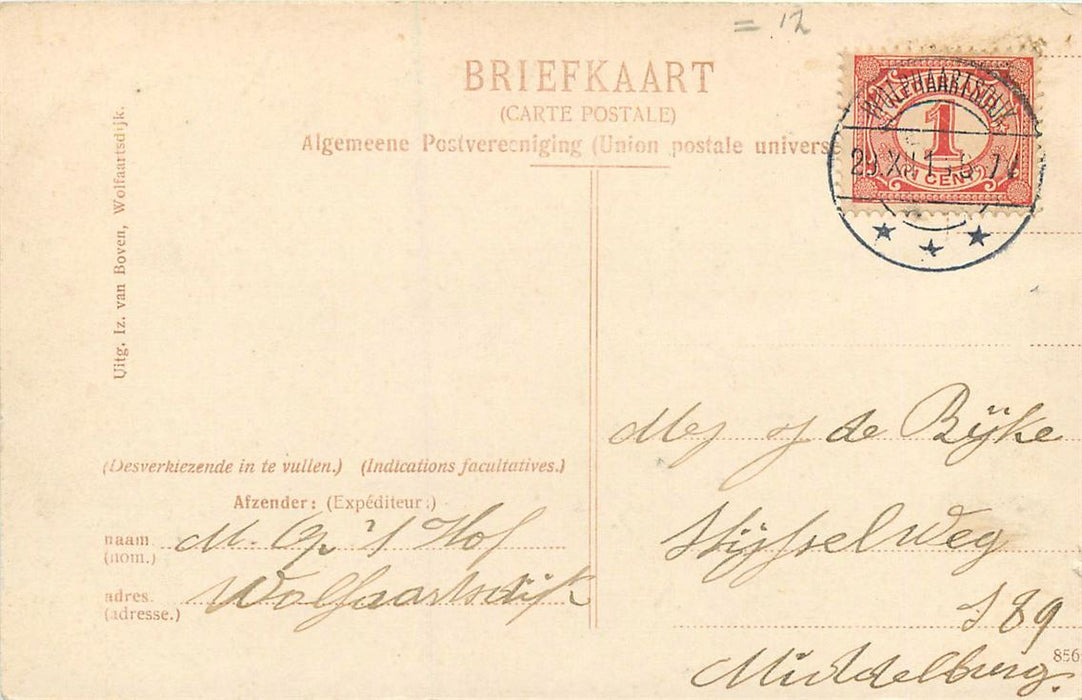 = 12
BRIEFKAART
(CARTE POSTALE)
Algemeene Postvereeniging (Union postale univers
WOLPHAARTSDIJK
1
CENT
Uitg. Iz. van Boven, Wolfaartsdijk.
(Desverkiezende in te vullen.) (Indications facultatives.)
Afzender: (Expéditeur:)
naam. M. Op 't Hof
(nom.)
adres. Wolfaartsdijk
(adresse.)
Mej de Rijke
weg
89
Middelburg.
856